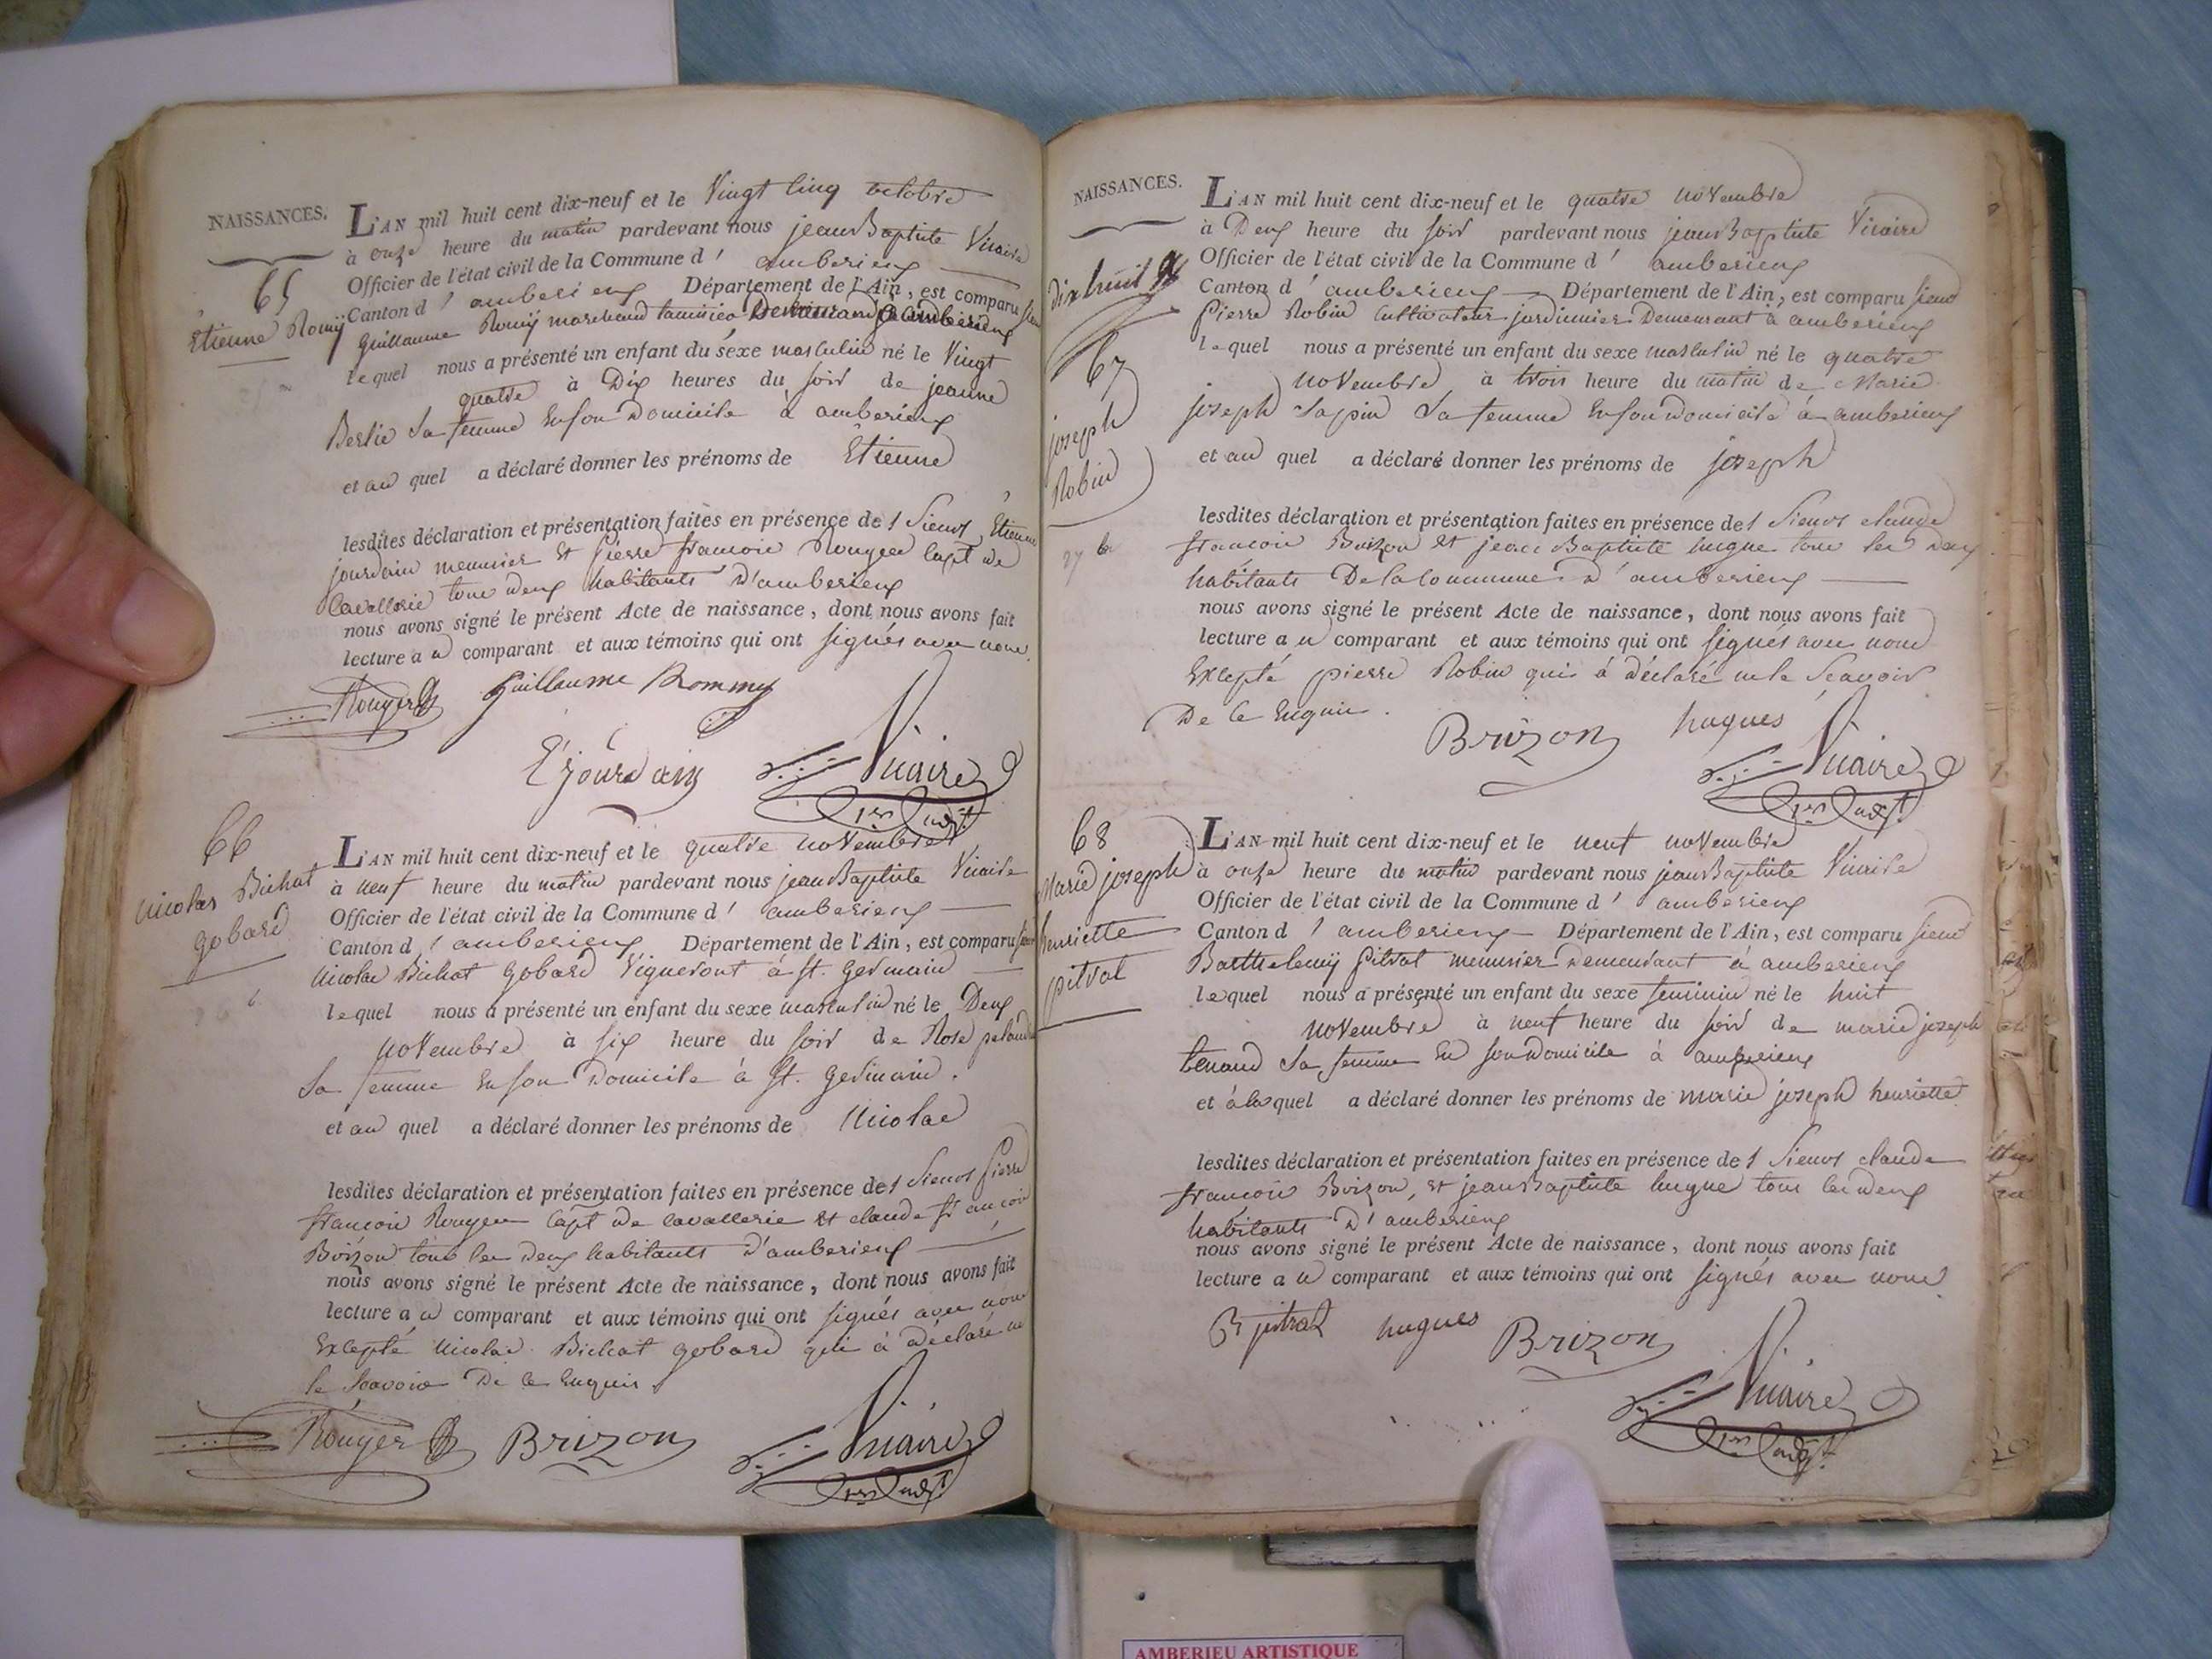 NAISSANCES.
65
Etienne Romÿ
L'AN mil huit cent dix-neuf et le Vingt cinq octobre
à onze heure du matin pardevant nous jean Baptiste Vicaire
Officier de l'état civil de la Commune d' amberieux
Canton d' amberieux Département de l'Ain, est comparu sieur
guillaume Romÿ marchand Demeurant à amberieux
lequel nous a présenté un enfant du sexe masculin né le Vingt
quatre à Dix heures du soir de jeanne
Berlie sa femme en son Domicile à amberieux
et au quel a déclaré donner les prénoms de Etienne
lesdites déclaration et présentation faites en présence des sieurs Etienne
jourdain meunier et Pierre françois Rouyer Capt de
Cavallerie tous deux habitants d'amberieux
nous avons signé le présent Acte de naissance, dont nous avons fait
lecture au comparant et aux témoins qui ont signés avec nous.
Rouyer Guillaume Rommy
E jourdain Vicaire
1er adjt
66
Nicolas Bichat
gobard
L'AN mil huit cent dix-neuf et le quatre novembre
à neuf heure du matin pardevant nous jean Baptiste Vicaire
Officier de l'état civil de la Commune d' amberieux
Canton d' amberieux Département de l'Ain, est comparu sieur
Nicolas Bichat gobard Vigneront à st. germain
lequel nous a présenté un enfant du sexe masculin né le Deux
novembre à six heure du soir de Rose
sa femme en son Domicile à st. germain.
et au quel a déclaré donner les prénoms de Nicolas
lesdites déclaration et présentation faites en présence des sieurs Pierre
françois Rouyer Capt de cavallerie et claude françois
Brizon tous les deux habitants d'amberieux
nous avons signé le présent Acte de naissance, dont nous avons fait
lecture au comparant et aux témoins qui ont signés avec nous
Excepté Nicolas Bichat gobard qui à déclaré ne
le scavoir De ce Enquis
Rouyer Brizon Vicaire
1er adjt
NAISSANCES.
dix huit
67
joseph
Robin
L'AN mil huit cent dix-neuf et le quatre novembre
à Deux heure du soir pardevant nous jean Baptiste Vicaire
Officier de l'état civil de la Commune d' amberieux
Canton d' amberieux Département de l'Ain, est comparu sieur
Pierre Robin cultivateur jardinnier Demeurant à amberieux
lequel nous a présenté un enfant du sexe masculin né le quatre
novembre à trois heure du matin de Marie
joseph Sapin sa femme en son Domicile à amberieux
et au quel a déclaré donner les prénoms de joseph
lesdites déclaration et présentation faites en présence des sieurs claude
françois Brizon et jean Baptiste hugue tous les deux
habitants De la Commune d'amberieux
nous avons signé le présent Acte de naissance, dont nous avons fait
lecture au comparant et aux témoins qui ont signés avec nous
Excepté pierre Robin qui à déclaré ne le Scavoir
De ce Enquis.
Brizon hugues
Vicaire
1er adjt
68
Marie joseph
henriette
pitrat
L'AN mil huit cent dix-neuf et le neuf novembre
à onze heure du matin pardevant nous jean Baptiste Vicaire
Officier de l'état civil de la Commune d' amberieux
Canton d' amberieux Département de l'Ain, est comparu sieur
Barthelemÿ Pitrat menuisier Demeurant à amberieux
lequel nous a présenté un enfant du sexe feminin né le huit
novembre à neuf heure du soir de marie joseph
tenand sa femme en son Domicile à amberieux
et à la quel a déclaré donner les prénoms de marie joseph henriette
lesdites déclaration et présentation faites en présence des sieurs claude
françois Brizon, et jean Baptiste hugue tous les deux
habitants d'amberieux
nous avons signé le présent Acte de naissance, dont nous avons fait
lecture au comparant et aux témoins qui ont signés avec nous
B pitrat hugues Brizon
Vicaire
1er adjt
AMBERIEU ARTISTIQUE